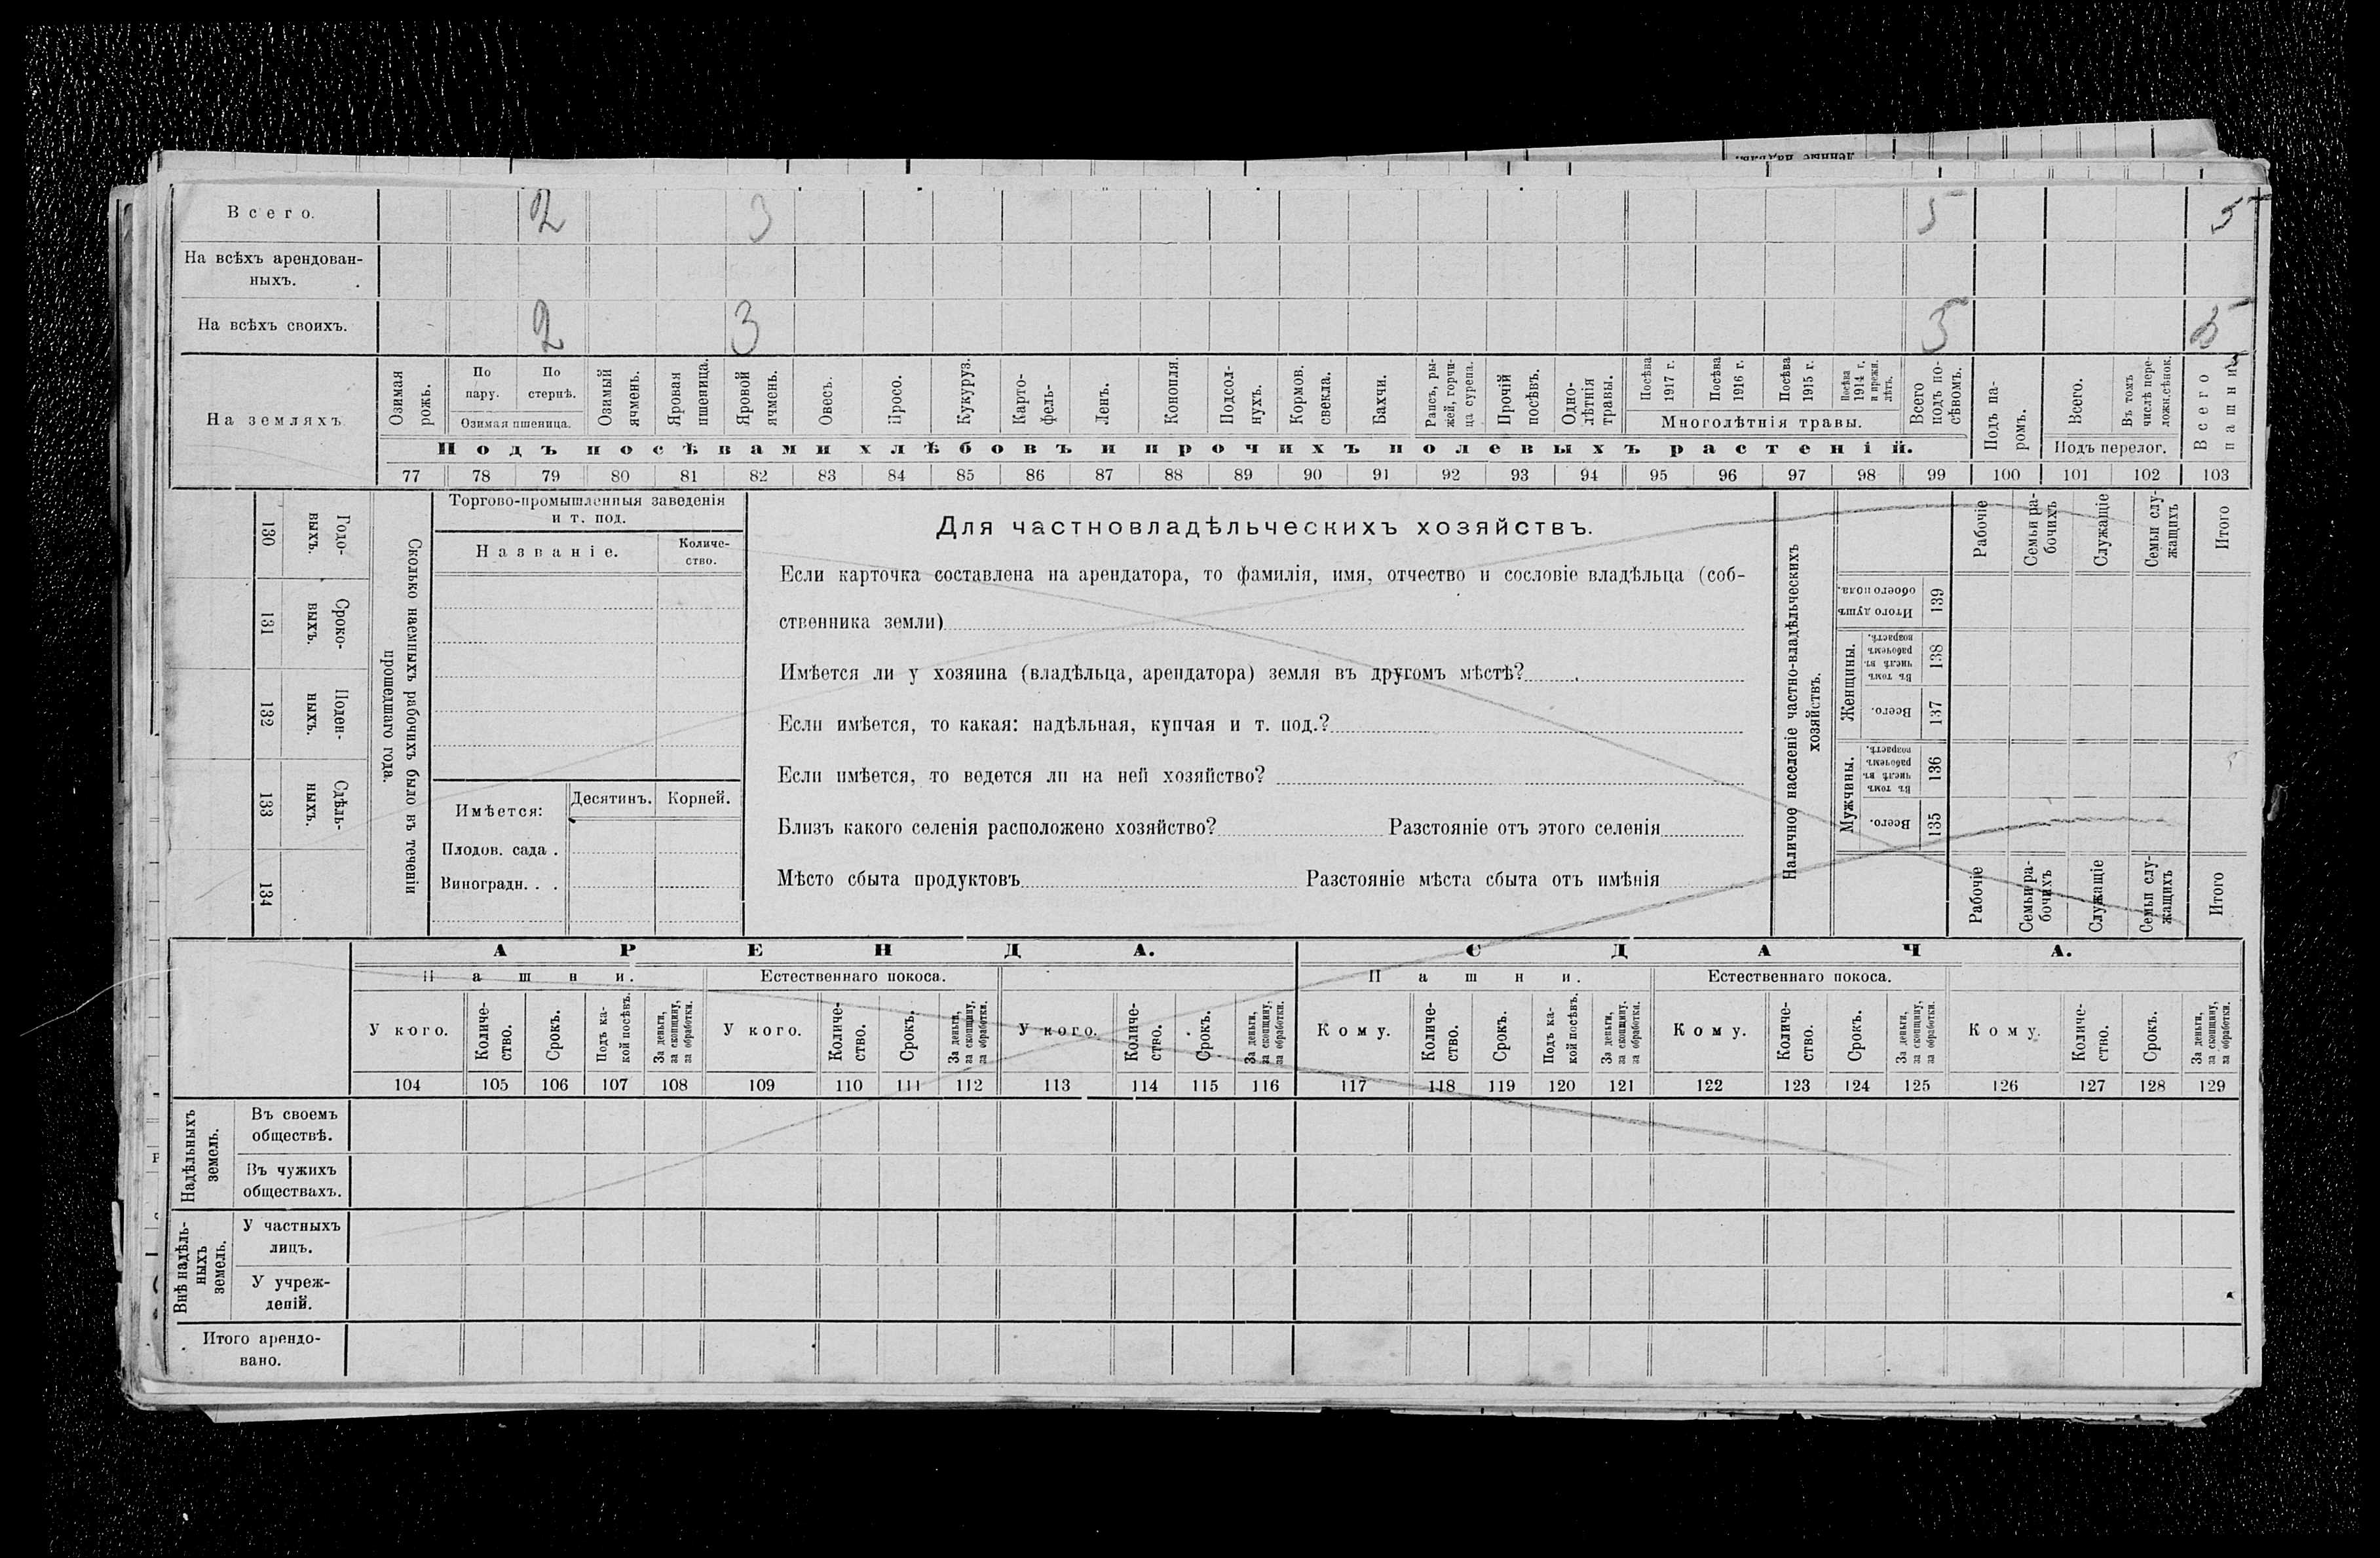 Всего. 2 3 5 5
На всѣхъ арендован-
ныхъ.
На всѣхъ своихъ. 2 3 5 5
На земляхъ
Озимая рожь.
По пару.
По стернѣ.
Озимая пшеница.
Озимый ячмень.
Яровая пшеница.
Яровой ячмень.
Овесъ.
Просо.
Кукуруз.
Карто-
фель-
Ленъ.
Конопля.
Подсол-
нухъ.
Кормов.
свекла.
Бахчи.
Рапсъ, ры-
жей, горчи-
ца сурепа.
Прочій
посѣвъ.
Одно-
лѣтнія
травы.
Посѣва 1917 г.
Посѣва 1916 г.
Посѣва 1915 г.
Посѣва 1914 г. и прежн. лѣтъ.
Многолѣтнія травы.
Всего
подъ по-
сѣвомъ.
Подъ посѣвами хлѣбовъ и прочихъ полевыхъ растеній.
Подъ па-
ромъ.
Всего.
Въ томъ
числѣ пере-
ложн. сѣнок.
Подъ перелог.
Всего
пашни
77 78 79 80 81 82 83 84 85 86 87 88 89 90 91 92 93 94 95 96 97 98 99 100 101 102 103
Сколько наемныхъ рабочихъ было въ теченіи
прошедшаго года.
Годо-
выхъ.
130
Сроко-
выхъ.
131
Поден-
ныхъ.
132
Сдѣль-
ныхъ.
133
134
Торгово-промышленныя заведенія
и т. под.
Названіе.
Количе-
ство.
Имѣется: Десятинъ. Корней.
Плодов. сада .
Виноградн. . .
Для частновладѣльческихъ хозяйствъ.
Если карточка составлена на арендатора, то фамилія, имя, отчество и сословіе владѣльца (соб-
ственника земли)
Имѣется ли у хозяина (владѣльца, арендатора) земля въ другомъ мѣстѣ?
Если имѣется, то какая: надѣльная, купчая и т. под.?
Если имѣется, то ведется ли на ней хозяйство?
Близъ какого селенія расположено хозяйство? Разстояніе отъ этого селенія
Мѣсто сбыта продуктовъ Разстояніе мѣста сбыта отъ имѣнія
Наличное населеніе частно-владѣльческихъ
хозяйствъ.
Рабочіе
Семьи ра-
бочихъ
Служащіе
Семьи слу-
жащихъ
Итого
Итого душъ
обоего пола.
139
Женщины.
Въ томъ
числѣ въ
рабочемъ
возрастѣ.
138
Всего.
137
Мужчины.
Въ томъ
числѣ въ
рабочемъ
возрастѣ.
136
Всего.
135
Рабочіе
Семьи ра-
бочихъ
Служащіе
Семьи слу-
жащихъ
Итого
АРЕНДА. СДАЧА.
Пашни. Естественнаго покоса. Пашни. Естественнаго покоса.
У кого.
Количе-
ство.
Срокъ.
Подъ ка-
кой посѣвъ.
За деньги,
за скопщину,
за обработки.
У кого.
Количе-
ство.
Срокъ.
За деньги,
за скопщину,
за обработки.
У кого.
Количе-
ство.
Срокъ.
За деньги,
за скопщину,
за обработки.
Кому.
Количе-
ство.
Срокъ.
Подъ ка-
кой посѣвъ.
За деньги,
за скопщину,
за обработки.
Кому.
Количе-
ство.
Срокъ.
За деньги,
за скопщину,
за обработки.
Кому.
Количе-
ство.
Срокъ.
За деньги,
за скопщину,
за обработки.
104 105 106 107 108 109 110 111 112 113 114 115 116 117 118 119 120 121 122 123 124 125 126 127 128 129
Надѣльныхъ
земель.
Въ своемъ
обществѣ.
Въ чужихъ
обществахъ.
Внѣ надѣль-
ныхъ
земель.
У частныхъ
лицъ.
У учреж-
деній.
Итого арендо-
вано.